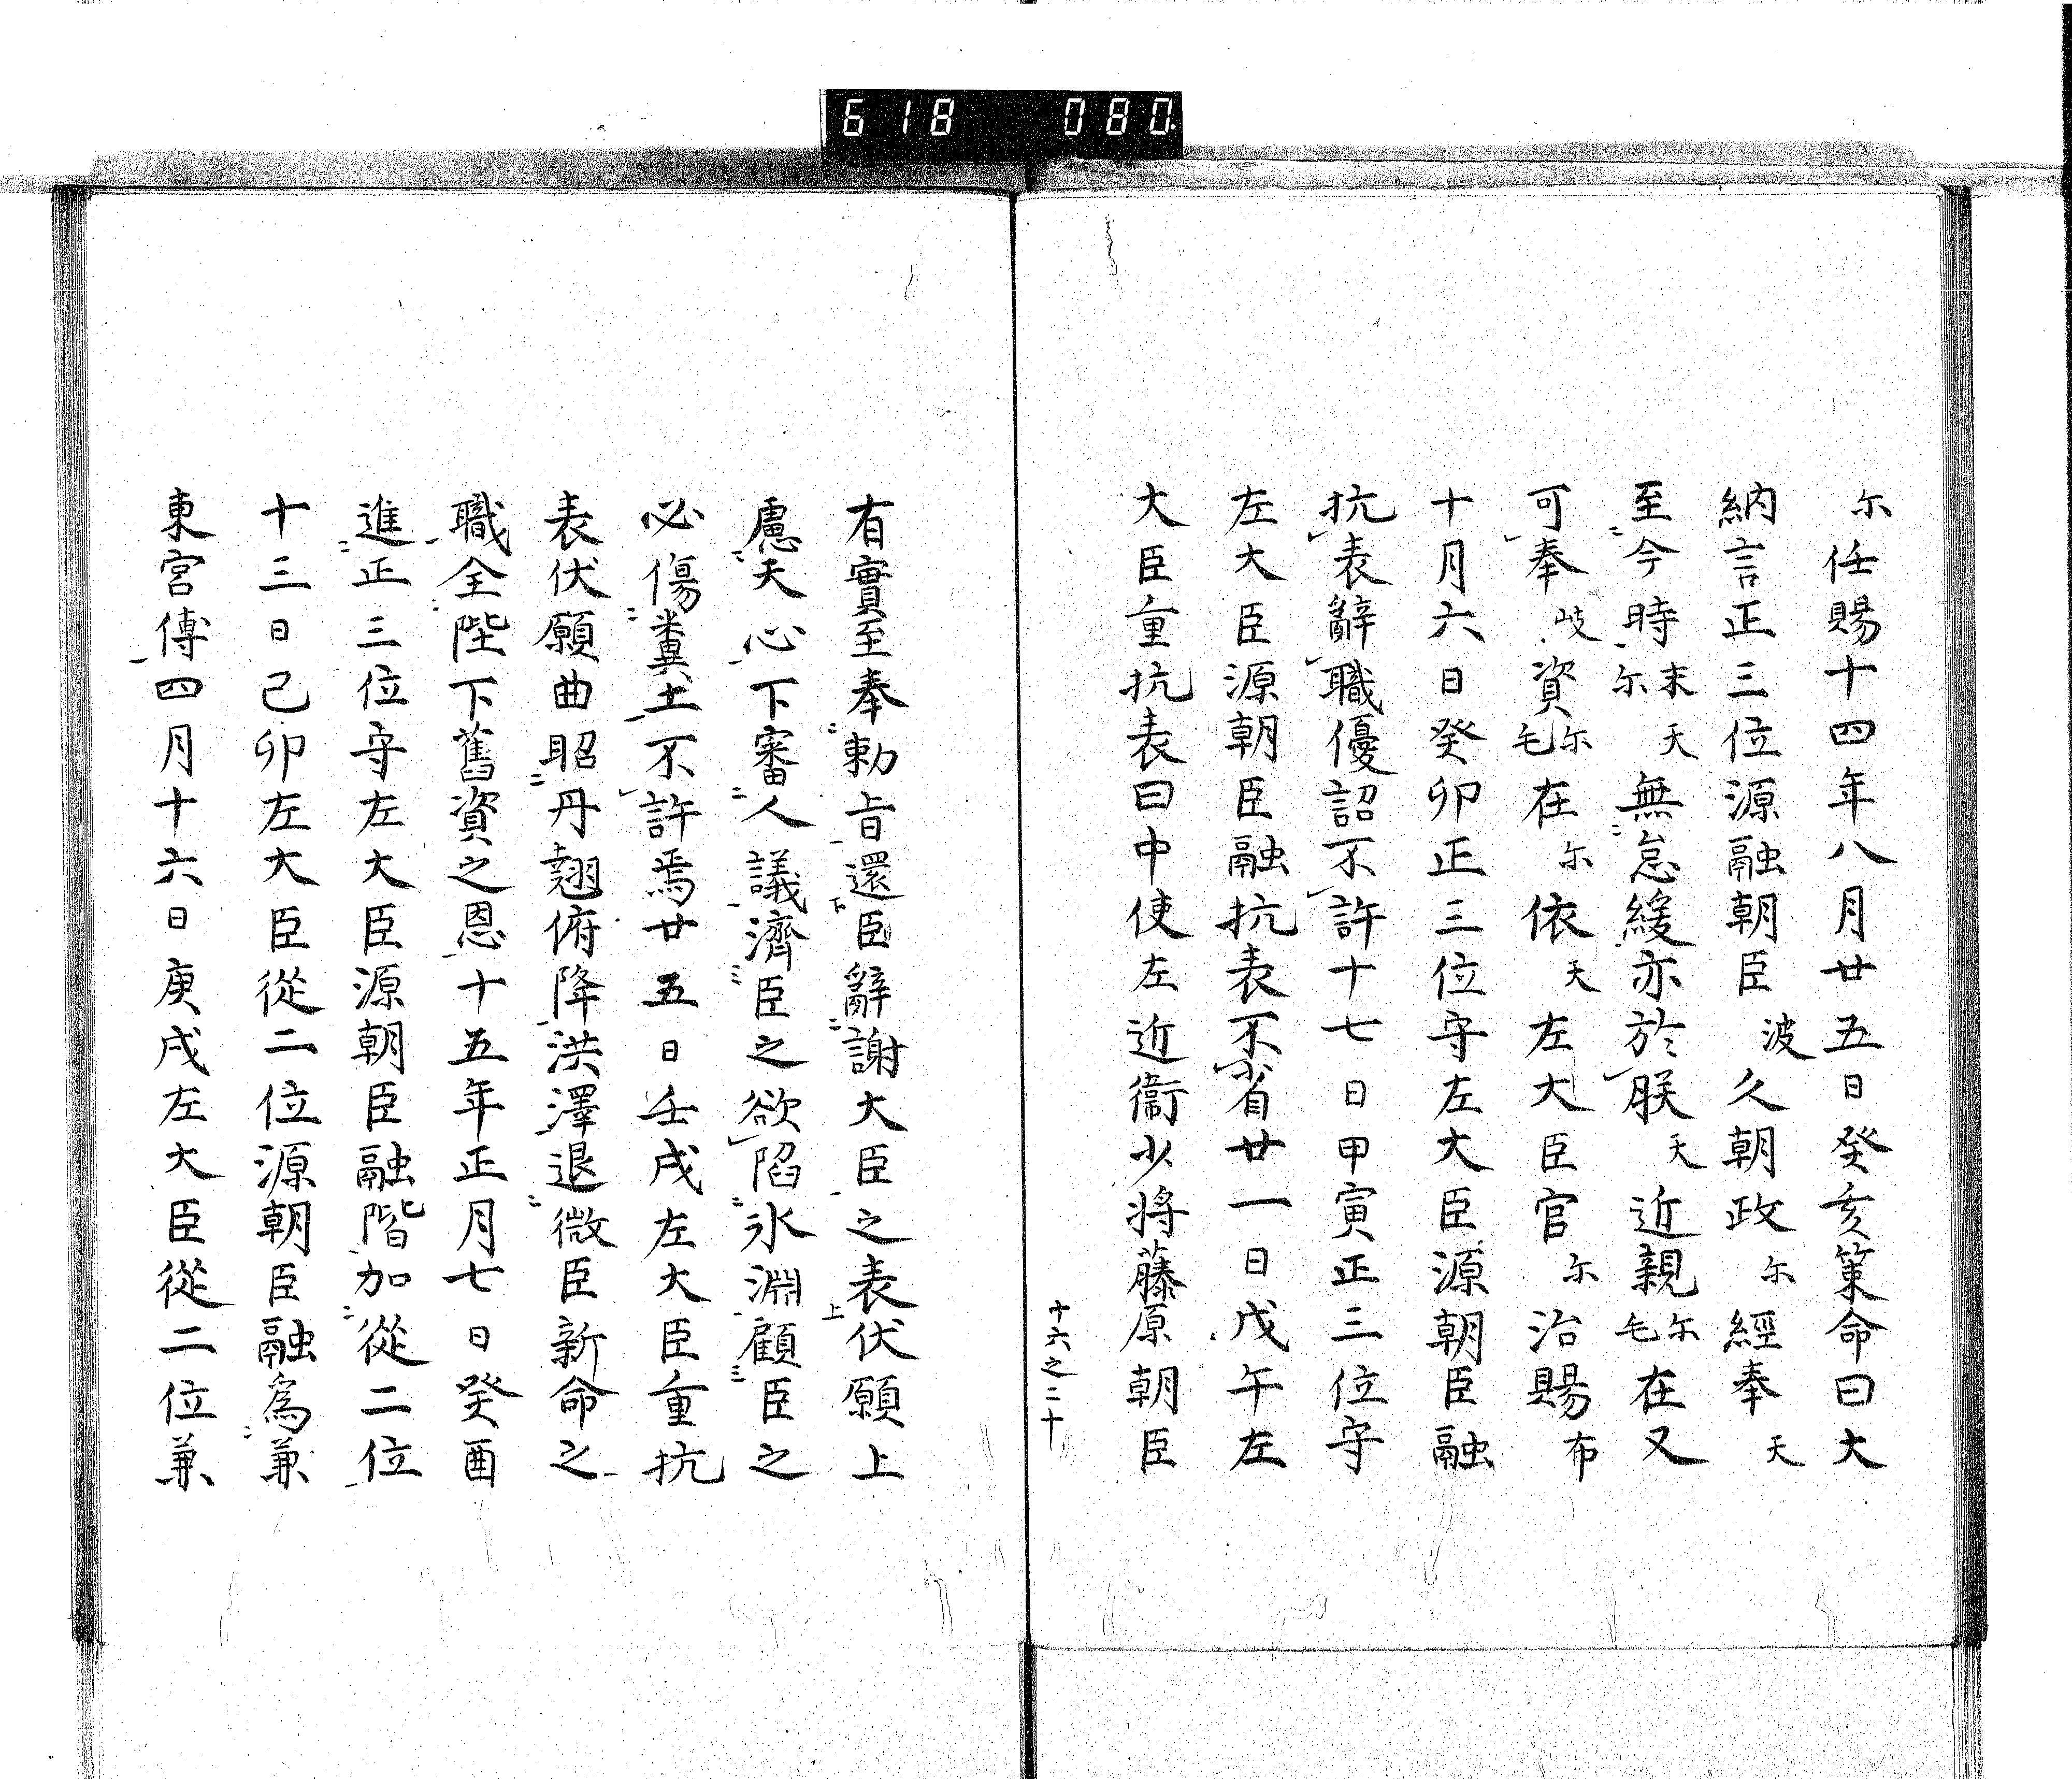 618 080
尓任賜十四年八月廿五日癸亥策命曰大
納言正三位源融朝臣波久朝政尓經奉天
至今時末天尓無怠緩亦於朕天近親尓毛在又
可奉岐資尓毛在尓依天左大臣官尓治賜布
十月六日癸卯正三位守左大臣源朝臣融
抗表辭職優詔不許十七日甲寅正三位守
左大臣源朝臣融抗表不省廿一日戊午左
大臣重抗表曰中使左近衞少將藤原朝臣
十六之二十
有實至奉勅旨還臣辭謝大臣之表伏願上
慮天心下審人議濟臣之欲陷氷淵顧臣之
必傷糞土不許焉廿五日壬戌左大臣重抗
表伏願曲昭丹翹俯降洪澤退微臣新命之
職全陛下舊資之恩十五年正月七日癸酉
進正三位守左大臣源朝臣融階加從二位
十三日己卯左大臣從二位源朝臣融爲兼
東宮傅四月十六日庚戌左大臣從二位兼